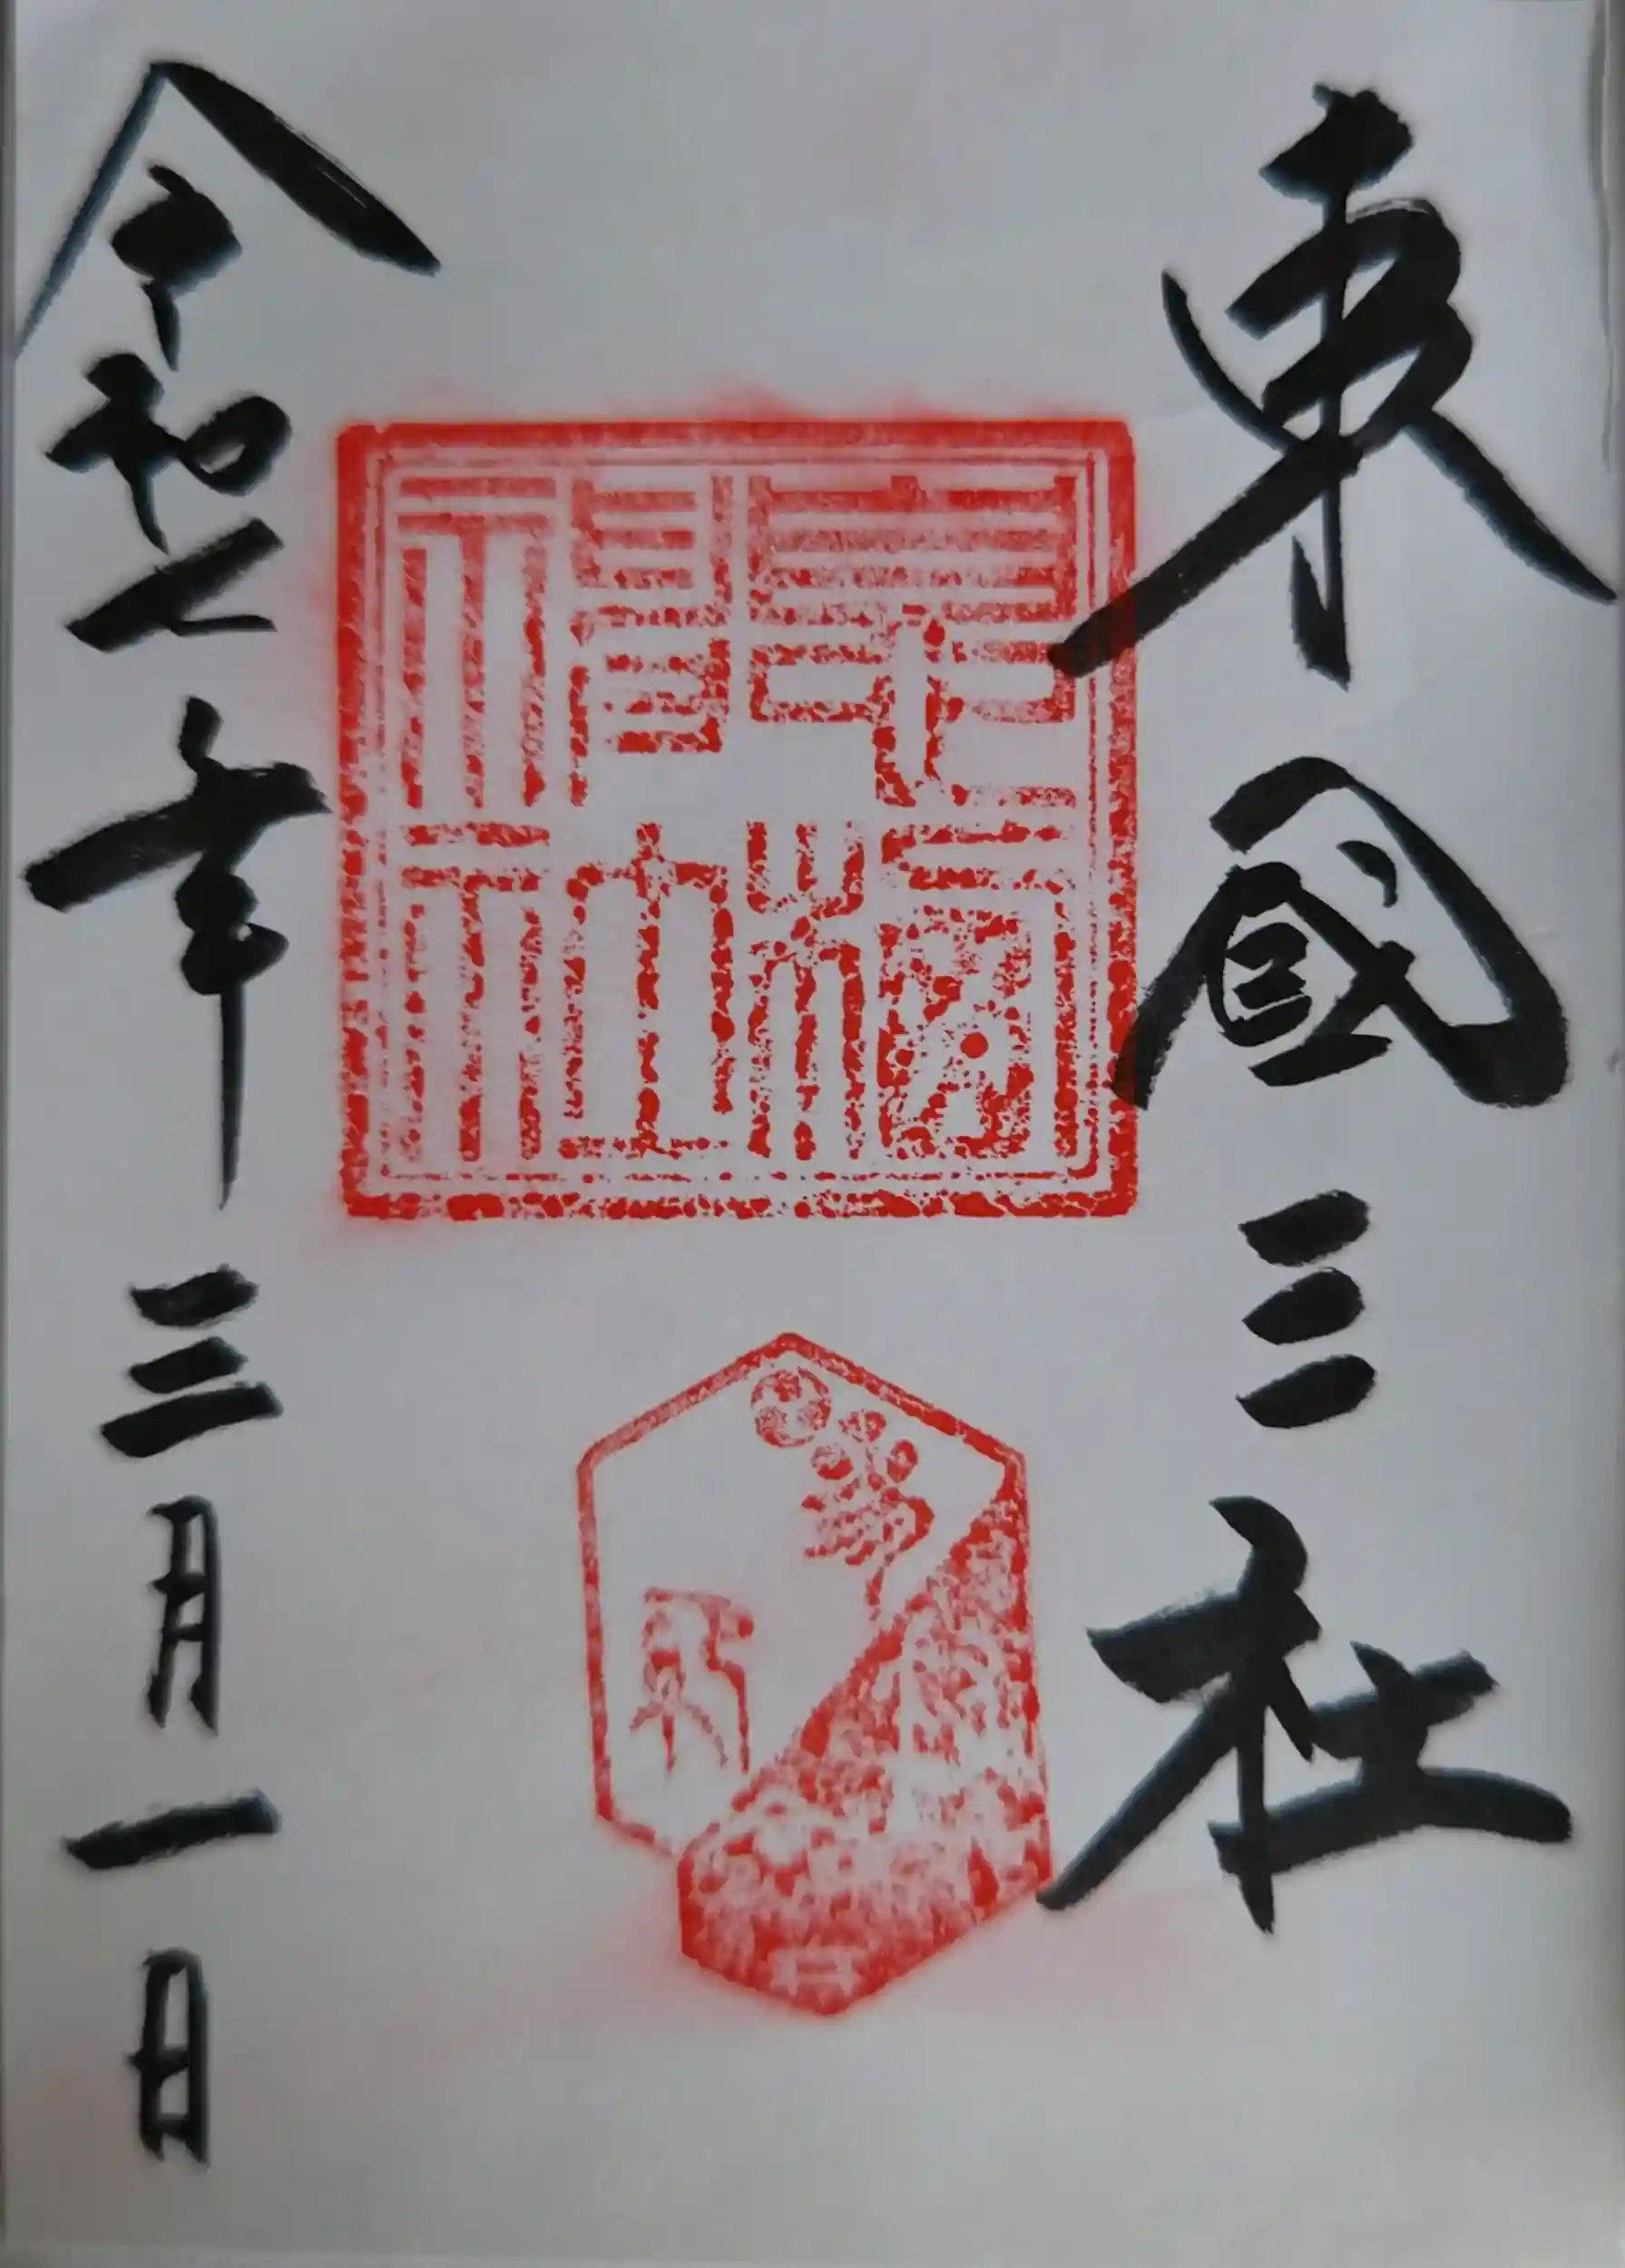 東國三社
息栖神社
令和七年三月一日